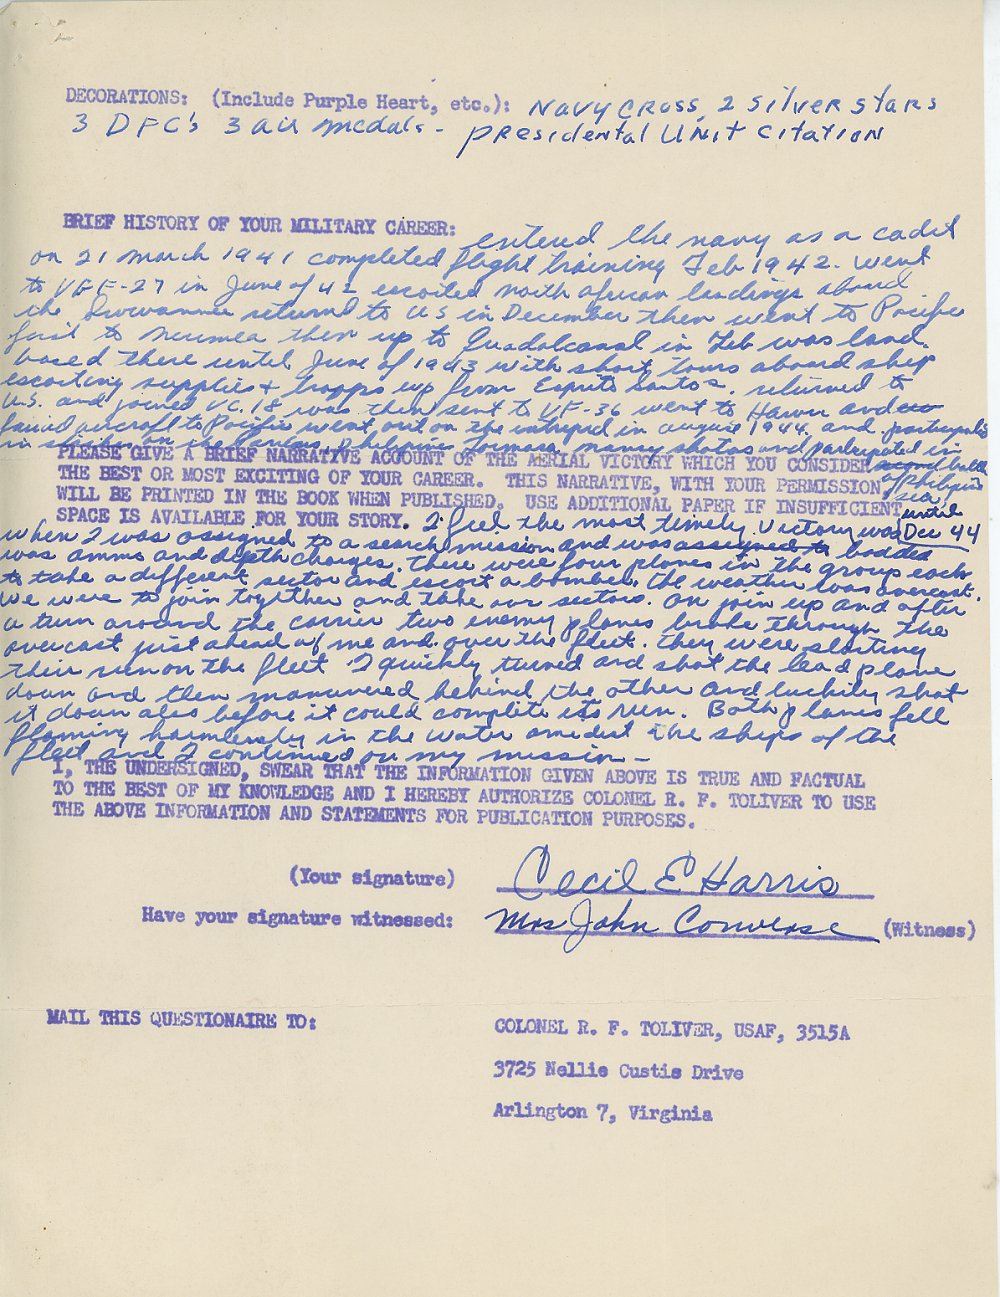 DECORATIONS: (Include Purple Heart, etc.): Navy Cross, 2 Silver Stars
3 DFC's 3 air medals - Presidental Unit Citation
BRIEF HISTORY OF YOUR MILITARY CAREER: entered the navy as a cadet
on 21 March 1941 completed flight training Feb 1942. Went
to VGF-27 in June of 42 escorted north african landings aboard
the Suwannee returned to US in December then went to Pacific
first to Noumea then up to Guadalcanal in Feb was land
based there until June of 1943 with short tours aboard ship
escorting supplies + troops up from Espirito Santos. returned to
U.S. and joined VC-18 was then sent to VF-36 went to Hawii and
aircraft to Pacific went out on the intrepid in august 1944. and participated
in strikes on the Palaus, Philipines Formosa, nansey shotos and participated in
second battle
of Philipines
sea
until
Dec 44
PLEASE GIVE A BRIEF NARRATIVE ACCOUNT OF THE AERIAL VICTORY WHICH YOU CONSIDER
THE BEST OR MOST EXCITING OF YOUR CAREER. THIS NARRATIVE, WITH YOUR PERMISSION,
WILL BE PRINTED IN THE BOOK WHEN PUBLISHED. USE ADDITIONAL PAPER IF INSUFFICIENT
SPACE IS AVAILABLE FOR YOUR STORY. I feel the most timely victory was
when I was assigned to a search mission and was assigned to
was ammo and depth charges. There were four planes in the group each
to take a different sector and escort a bomber. the weather was overcast.
We were to join together and take our sectors. On join up and after
a turn around the carrier two enemy planes broke through the
overcast just ahead of me and over the fleet. they were starting
their run on the fleet I quickly turned and shot the lead plane
down and then manuvered behind the other and luckily shot
it down also before it could complete its run. Both planes fell
flaming harmlessly in the water amidst the ships of the
fleet and I continued on my mission -
I, THE UNDERSIGNED, SWEAR THAT THE INFORMATION GIVEN ABOVE IS TRUE AND FACTUAL
TO THE BEST OF MY KNOWLEDGE AND I HEREBY AUTHORIZE COLONEL R. F. TOLIVER TO USE
THE ABOVE INFORMATION AND STATEMENTS FOR PUBLICATION PURPOSES.
(Your signature) Cecil E Harris
Have your signature witnessed: Mrs John Converse (Witness)
MAIL THIS QUESTIONAIRE TO: COLONEL R. F. TOLIVER, USAF, 3515A
3725 Nellie Custis Drive
Arlington 7, Virginia